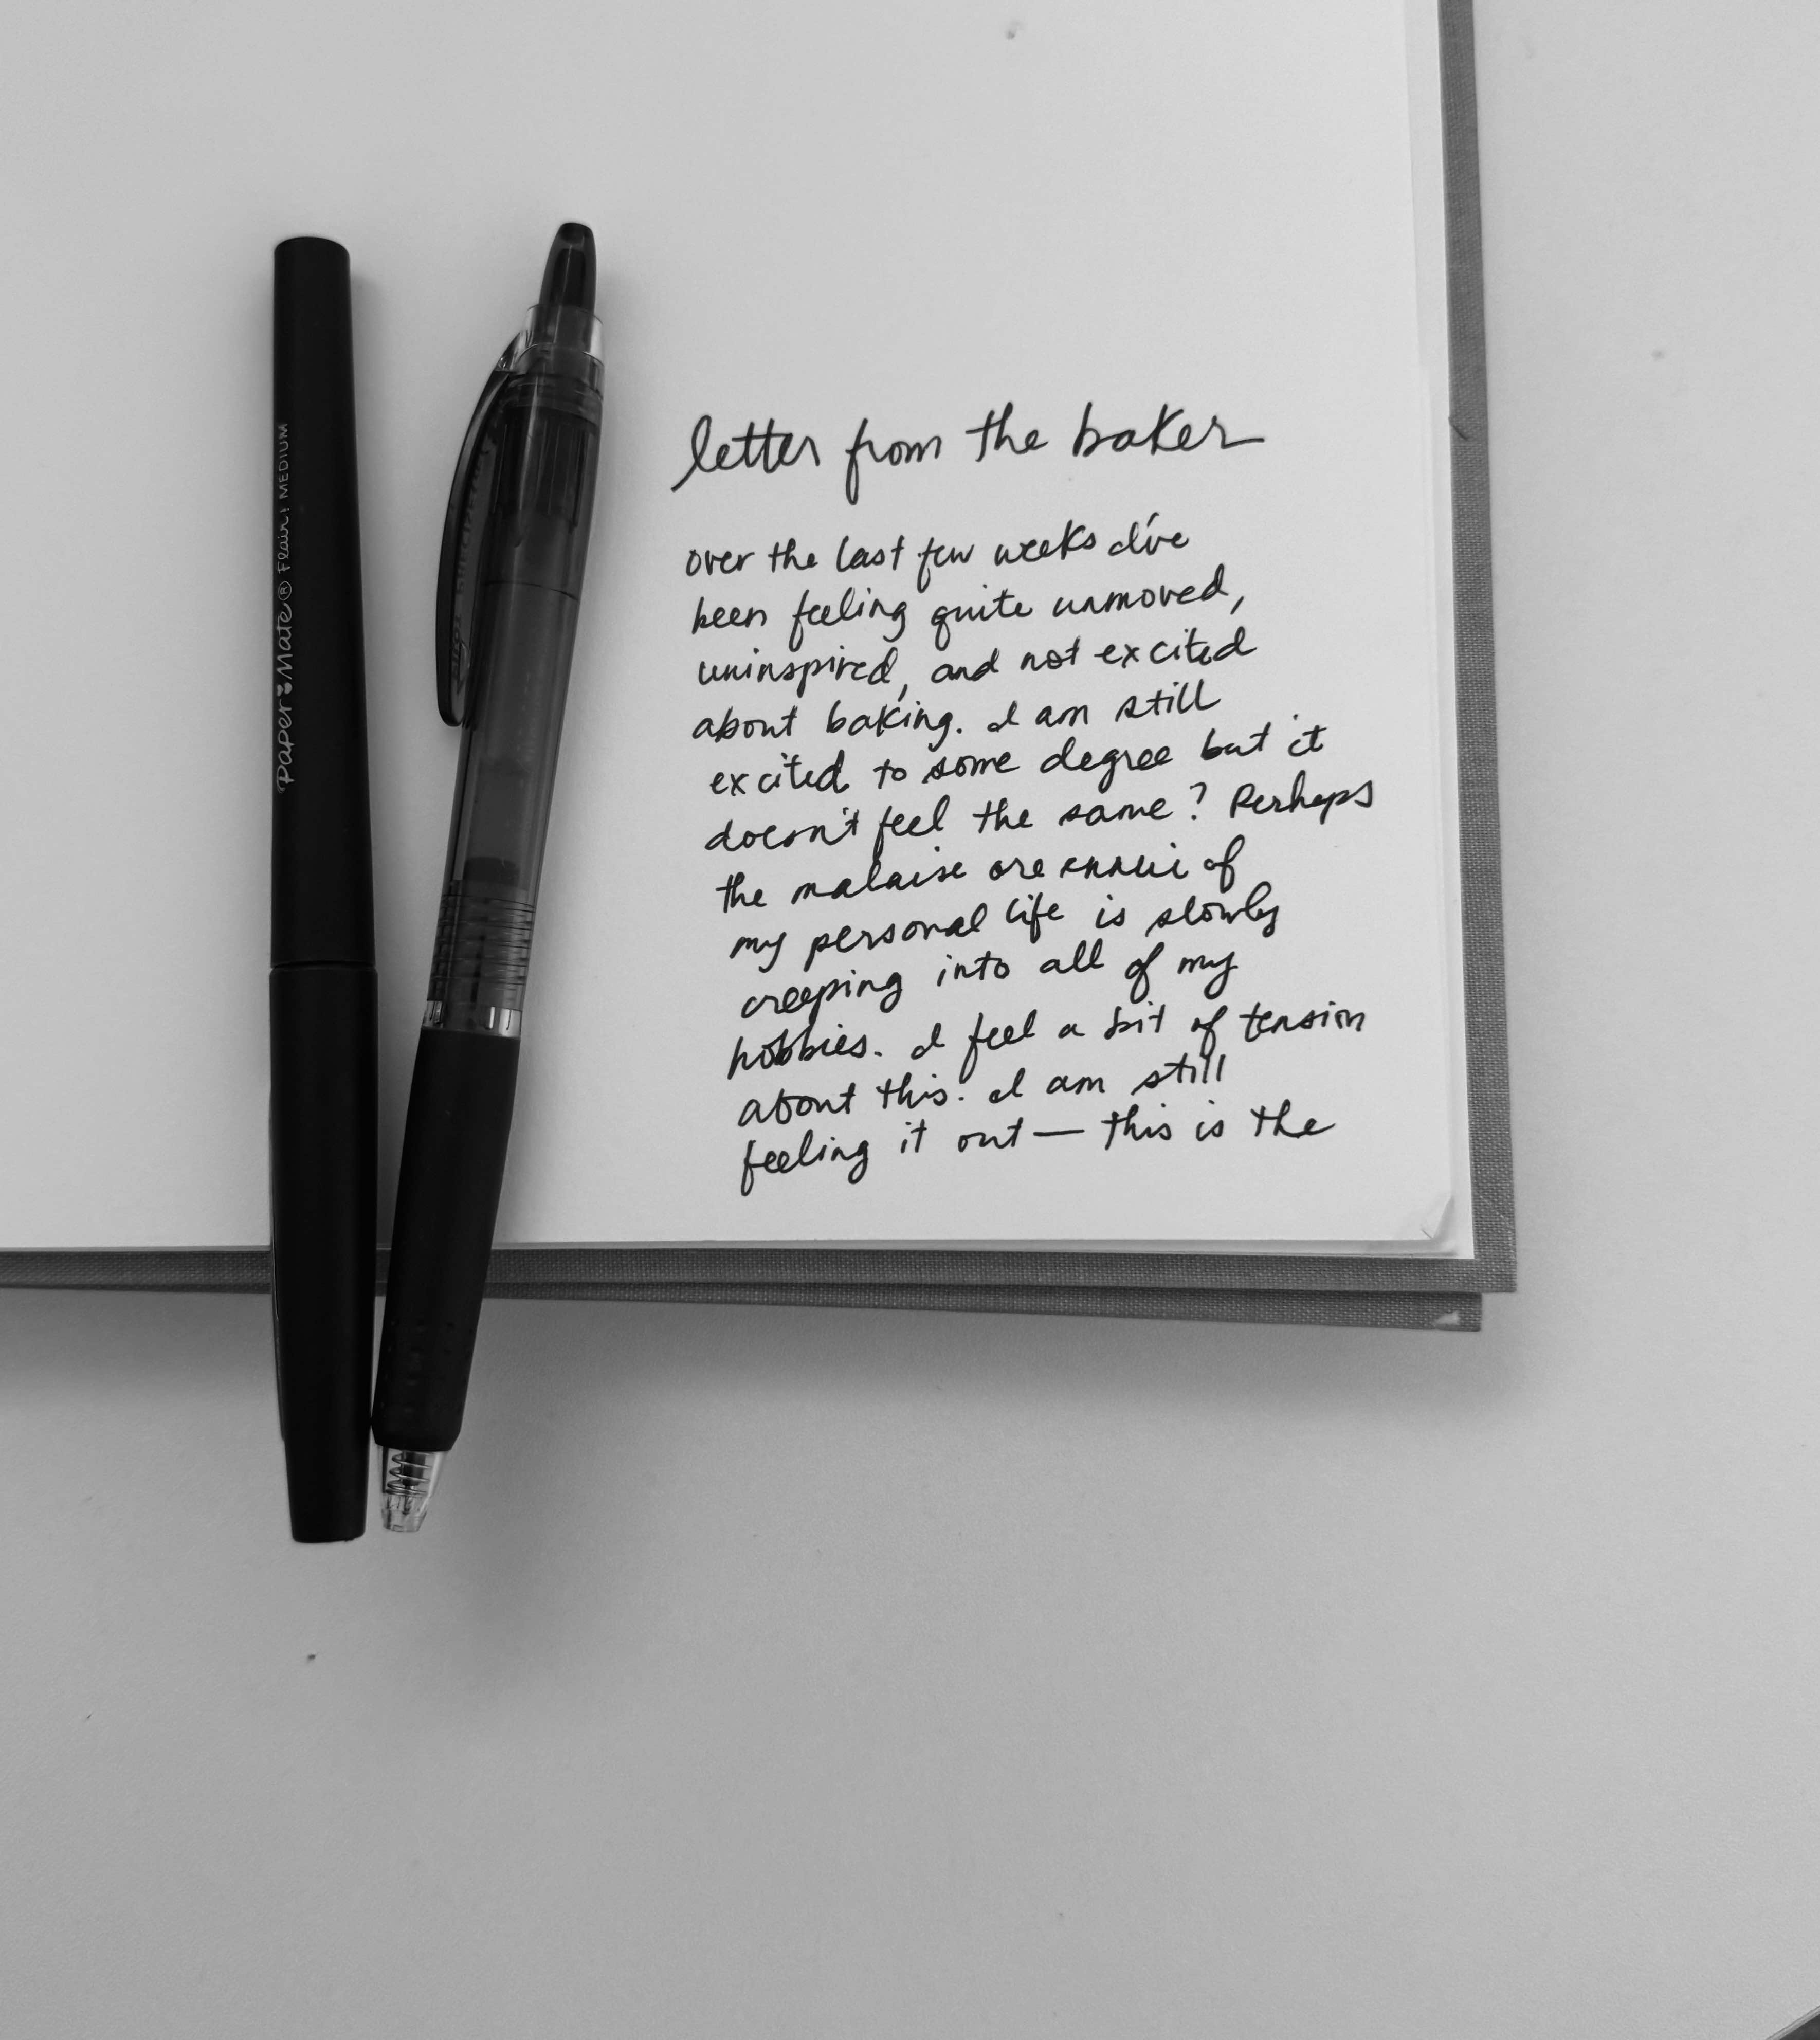 Paper Mate® Flair! MEDIUM
letter from the baker
over the last few weeks I've
been feeling quite unmoved,
uninspired, and not excited
about baking. I am still
excited to some degree but it
doesn't feel the same? Perhaps
the malaise ore ennui of
my personal life is slowly
creeping into all of my
hobbies. I feel a bit of tension
about this. I am still
feeling it out — this is the